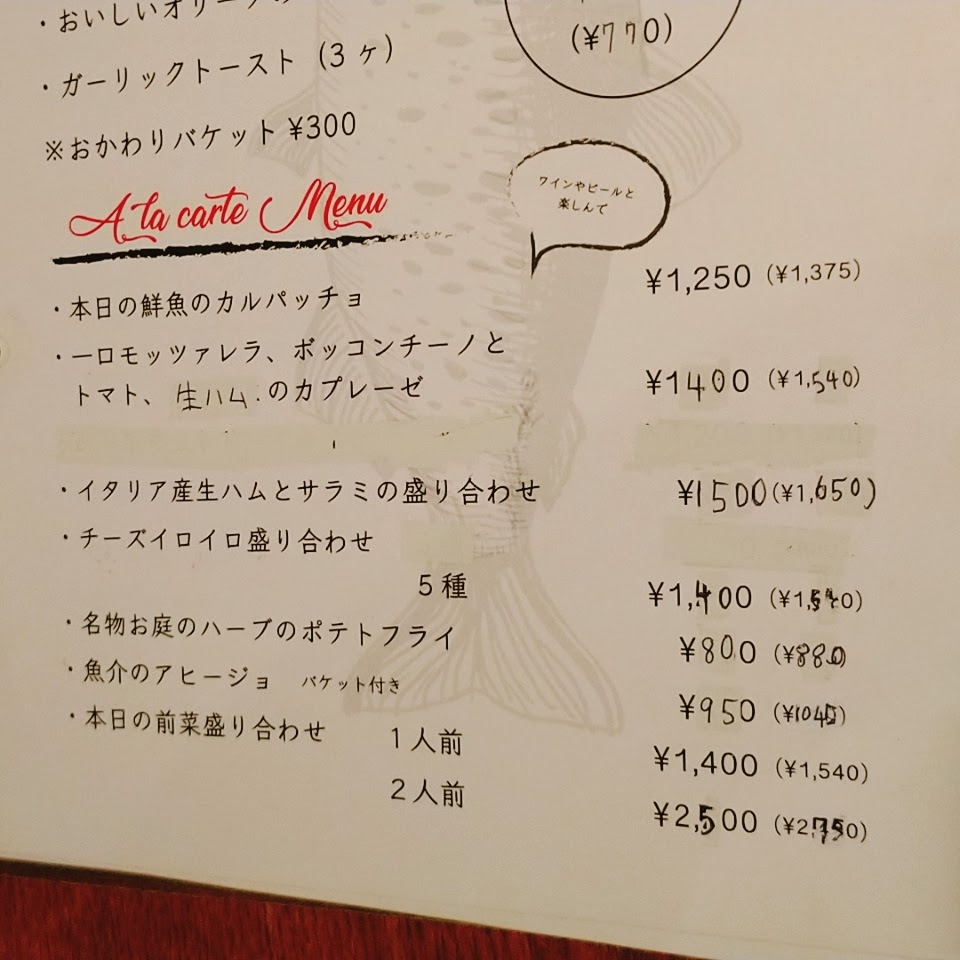 ・おいしいオリーブの
(¥770)
・ガーリックトースト (3ヶ)
※おかわりバケット ¥300
A la carte Menu
ワインやビールと
楽しんで
・本日の鮮魚のカルパッチョ ¥1,250 (¥1,375)
・一口モッツァレラ、ボッコンチーノと
トマト、生ハム.のカプレーゼ ¥1400 (¥1,540)
・イタリア産生ハムとサラミの盛り合わせ ¥1500 (¥1,650)
・チーズイロイロ盛り合わせ
5種 ¥1,400 (¥1,540)
・名物お庭のハーブのポテトフライ ¥800 (¥880)
・魚介のアヒージョ バケット付き ¥950 (¥1045)
・本日の前菜盛り合わせ 1人前 ¥1,400 (¥1,540)
2人前 ¥2,500 (¥2,750)